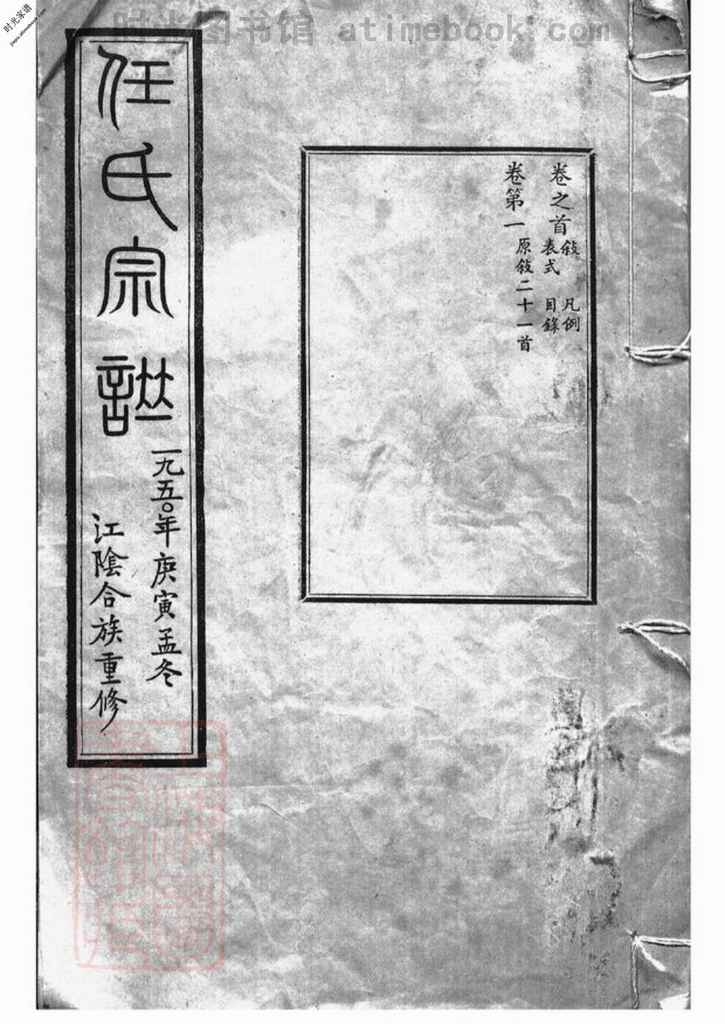 时光图书馆 atimebook.com
时光家谱
卷之首 敍 凡例
表式 目錄
卷第一 原敍二十一首
任氏宗譜
一九五〇年庚寅孟冬
江陰合族重修